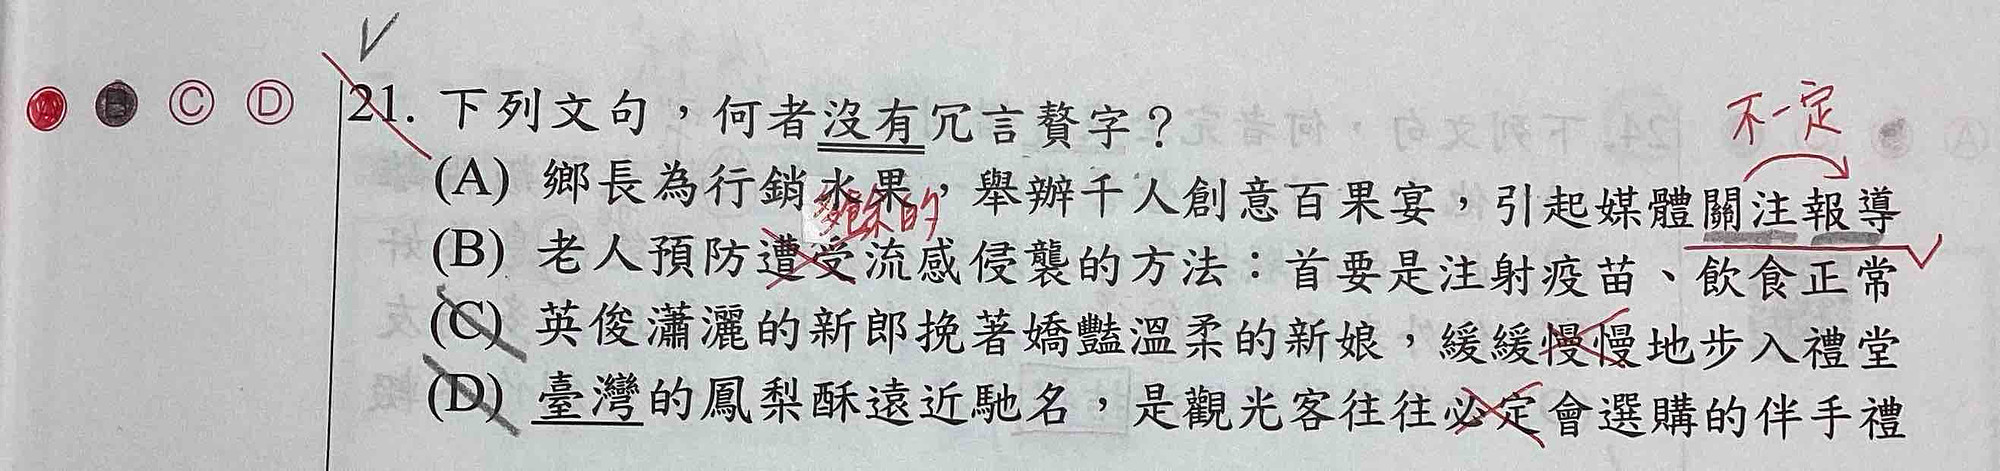 不一定
Ⓒ Ⓓ 21. 下列文句，何者沒有冗言贅字？
(A) 鄉長為行銷水果，舉辦千人創意百果宴，引起媒體關注報導
多餘的
(B) 老人預防遭受流感侵襲的方法：首要是注射疫苗、飲食正常
(C) 英俊瀟灑的新郎挽著嬌豔溫柔的新娘，緩緩慢慢地步入禮堂
(D) 臺灣的鳳梨酥遠近馳名，是觀光客往往必定會選購的伴手禮